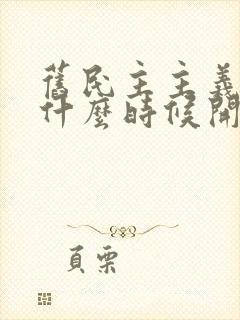 舊民主主義
什麼時候開
頁栗